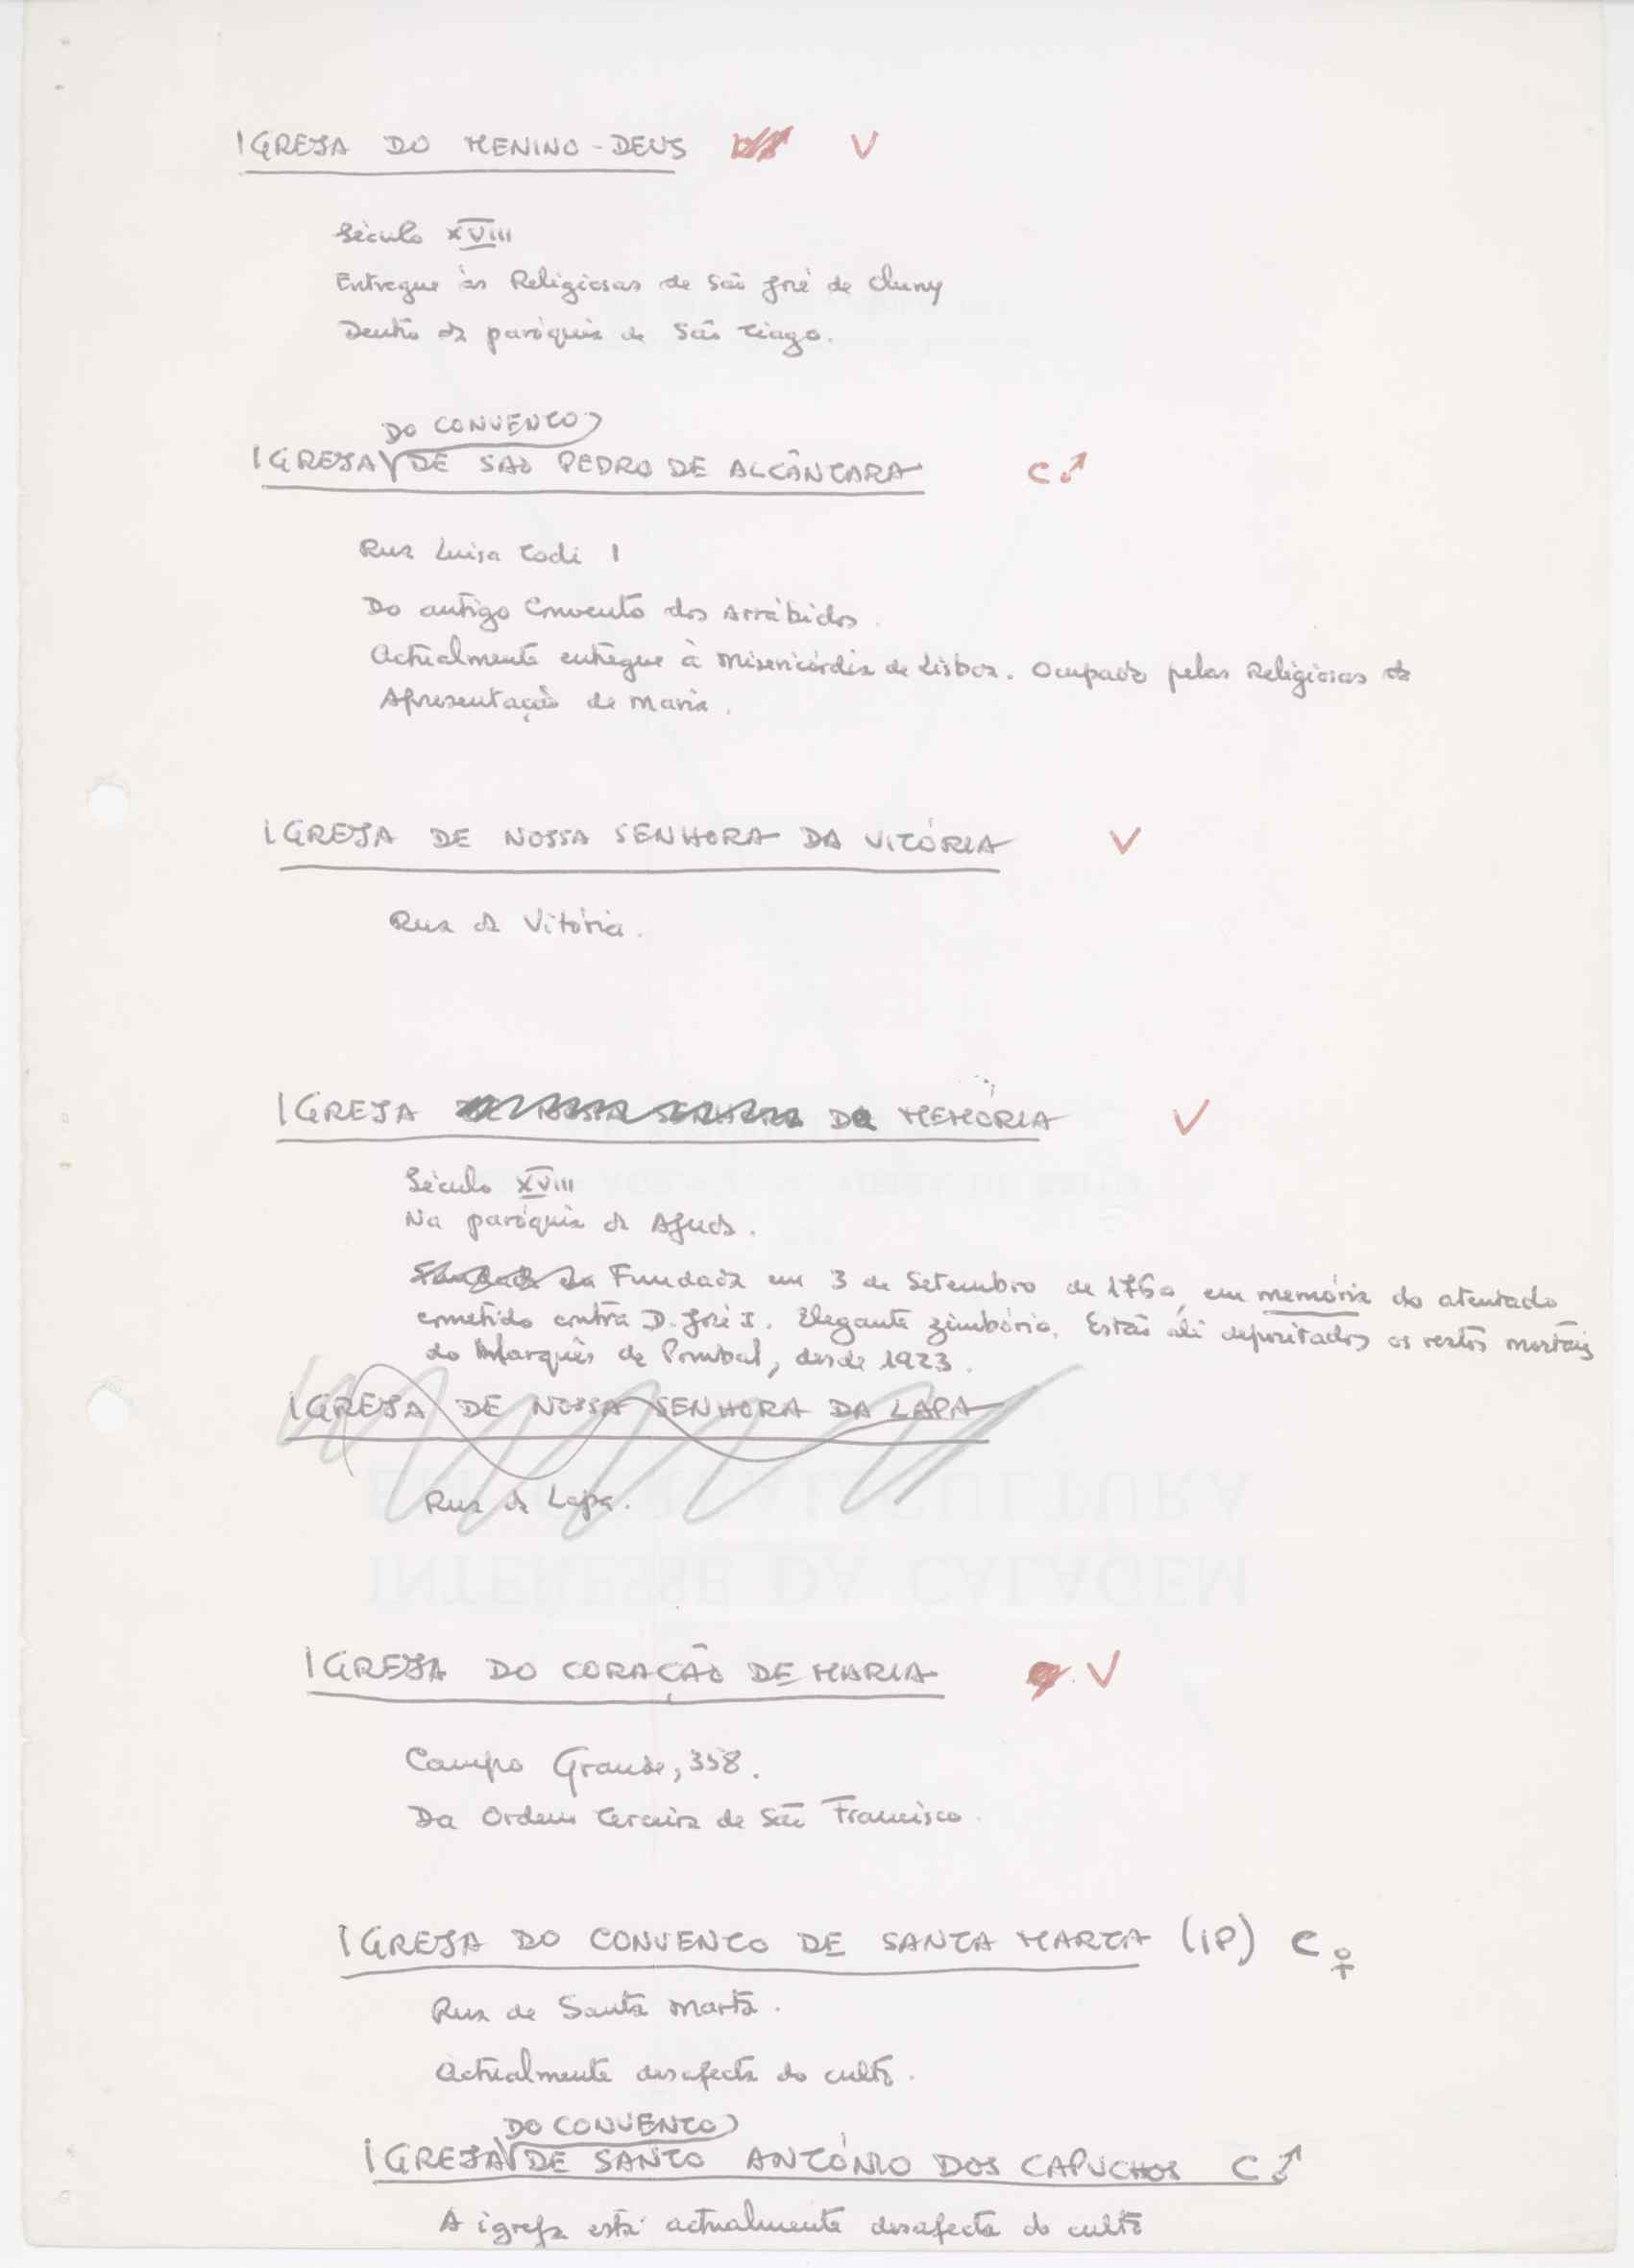 IGREJA DO MENINO-DEUS V
Século XVIII
Entregue às Religiosas de São José de Cluny
Dentro da paróquia de São Tiago.
DO CONVENTO
IGREJA DE SÃO PEDRO DE ALCÂNTARA C♂
Rua Luisa Todi 1
Do antigo Convento dos Arrábidos.
Actualmente entregue à Misericórdia de Lisboa. Ocupado pelas Religiosas da
Apresentação de Maria.
IGREJA DE NOSSA SENHORA DA VITÓRIA V
Rua da Vitória.
IGREJA DE NOSSA SENHORA DA MEMÓRIA V
Século XVIII
Na paróquia da Ajuda.
Fundada em 3 de Setembro de 1760, em memória do atentado
cometido contra D. José I. Elegante zimbório. Estão ali depositados os restos mortais
do Marquês de Pombal, desde 1923.
IGREJA DE NOSSA SENHORA DA LAPA
Rua da Lapa.
IGREJA DO CORAÇÃO DE MARIA V
Campo Grande, 358.
Da Ordem Terceira de São Francisco.
IGREJA DO CONVENTO DE SANTA MARTA (IP) C♀
Rua de Santa Marta.
Actualmente desafecta do culto.
DO CONVENTO
IGREJA DE SANTO ANTÓNIO DOS CAPUCHOS C♂
A igreja está actualmente desafecta do culto
INTERESSE DA CALAGEM
CULTURA